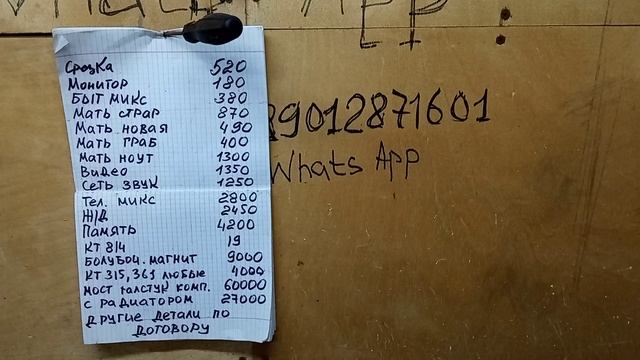 Whats App
Срезка 520
Монитор 180
Быт микс 380
Мать страр 870
Мать новая 490
Мать граб 400
Мать ноут 1300
Видео 1350
Сеть звук 1250
Тел. микс 2800
Ж/Д 2450
Память 4200
КТ 814 19
Болубой. магнит 9000
КТ 315, 361 любые 4000
мост галстук комп. 60000
с радиатором 27000
Другие детали по
договору
89012871601
Whats App